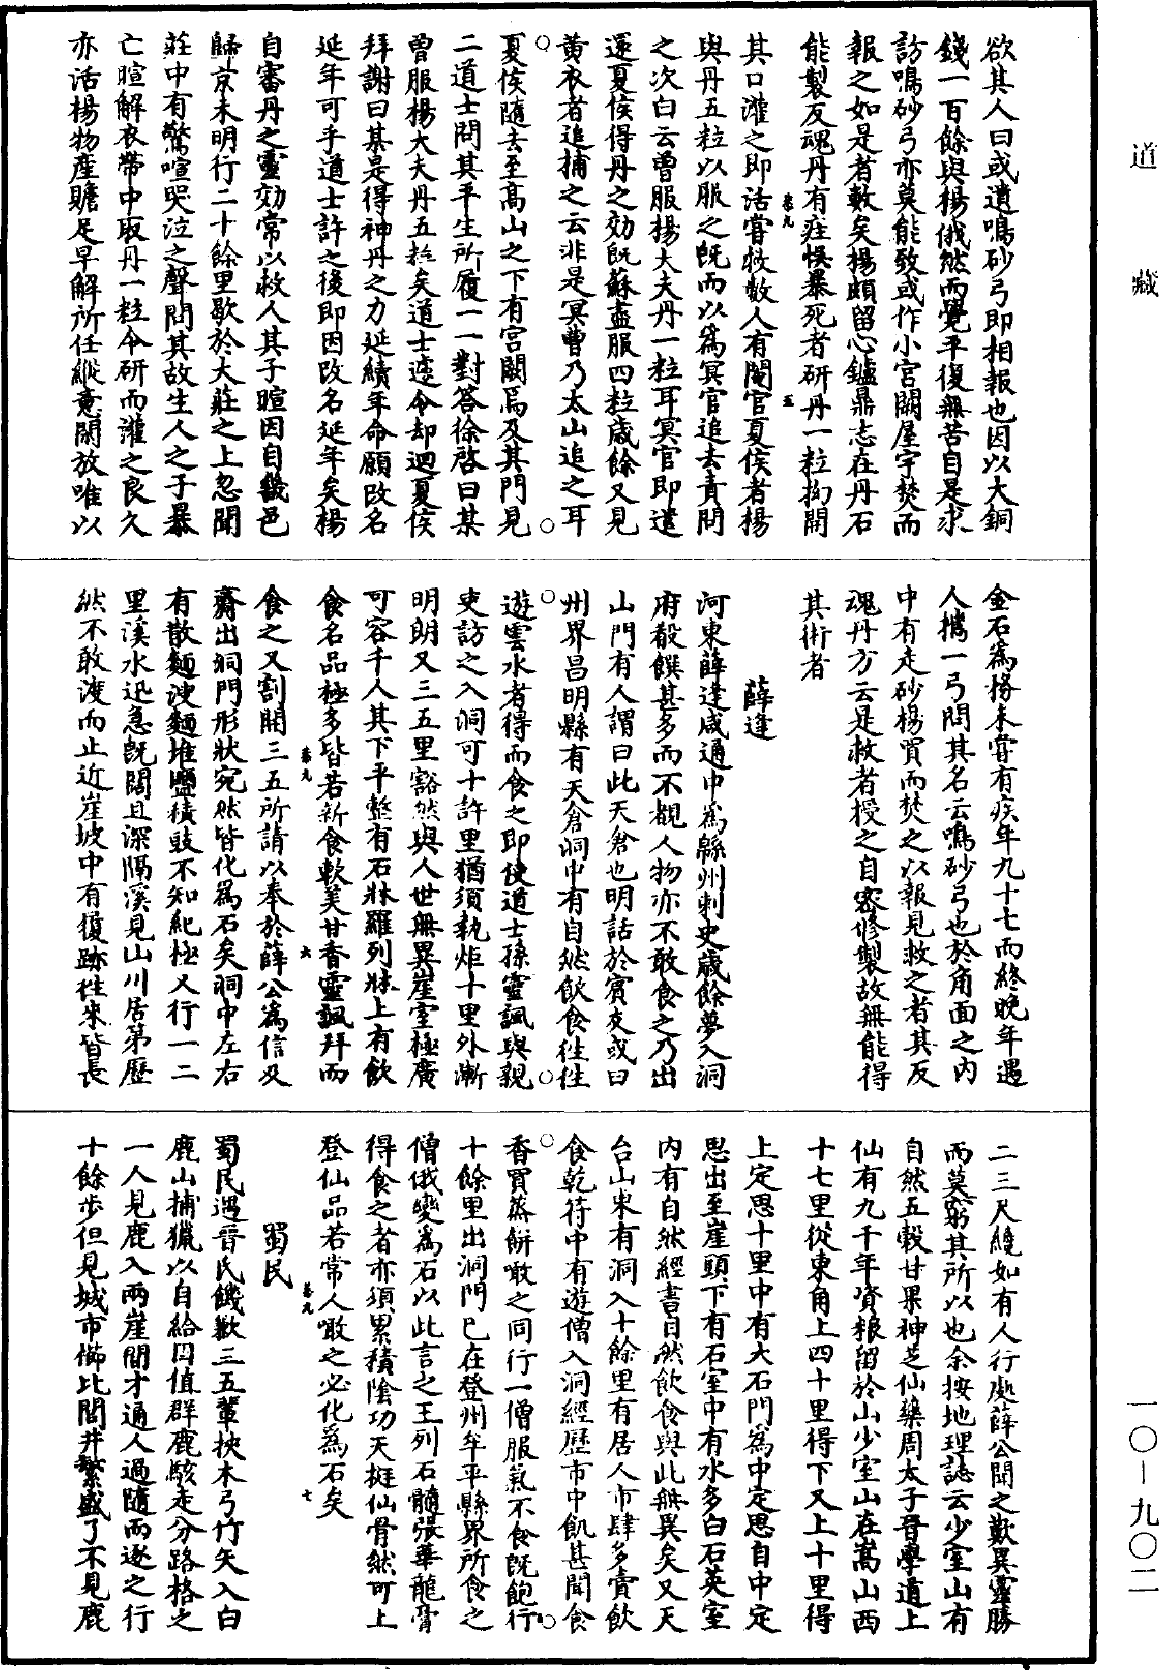 道藏
欲其人曰或遺鳴砂弓即相報也因以大銅
錢一百餘與楊俄然而覺平復無苦自是求
訪鳴砂弓亦莫能致或作小宮闕屋宇焚而
報之如是者數矣楊頗留心鑪鼎志在丹石
能製反魂丹有疰悮暴死者研丹一粒拗開
卷九 五
其口灌之即活嘗救數人有閽官夏侯者楊
與丹五粒以服之既而以為冥官追去責問
之次白云曾服楊大夫丹一粒耳冥官即遣
還夏侯得丹之効既蘇盡服四粒歲餘又見
黃衣者追捕之云非是冥曹乃太山追之耳
夏侯隨去至高山之下有宮闕焉及其門見
二道士問其平生所履一一對答徐啓曰某
曾服楊大夫丹五粒矣道士遽令却迴夏侯
拜謝曰某是得神丹之力延續年命願改名
延年可乎道士許之後即因改名延年矣楊
自審丹之靈効常以救人其子暄因自畿邑
歸京未明行二十餘里歇於大莊之上忽聞
莊中有驚喧哭泣之聲問其故生人之子暴
亡暄解衣帶中取丹一粒令研而灌之良久
亦活楊物產贍足早解所任縱意閑放唯以
金石為務未嘗有疾年九十七而終晚年遇
人攜一弓問其名云鳴砂弓也於角面之內
中有走砂楊買而焚之以報見救之者其反
魂丹方云是救者授之自密修製故無能得
其術者
薛逢
河東薛逢咸通中為緜州刺史歲餘夢入洞
府殽饌甚多而不覩人物亦不敢食之乃出
山門有人謂曰此天倉也明話於賓友或曰
州界昌明縣有天倉洞中有自然飲食往往
遊雲水者得而食之即使道士孫靈諷與親
吏訪之入洞可十許里猶須執炬十里外漸
明朗又三五里豁然與人世無異崖室極廣
可容千人其下平整有石牀羅列牀上有飲
食名品極多皆若新食軟美甘香靈諷拜而
卷九 六
食之又割開三五所請以奉於薛公為信及
齎出洞門形狀宛然皆化為石矣洞中左右
有散麵溲麵堆鹽積豉不知紀極又行一二
里溪水迅急既闊且深隔溪見山川居第歷
然不敢渡而止近崖坡中有履跡往來皆長
二三尺纔如有人行處薛公聞之歎異靈勝
而莫窮其所以也余按地理誌云少室山有
自然五穀甘果神芝仙藥周太子晉學道上
仙有九千年資糧留於山少室山在嵩山西
十七里從東角上四十里得下又上十里得
上定思十里中有大石門為中定思自中定
思出至崖頭下有石室中有水多白石英室
內有自然經書自然飲食與此無異矣又天
台山東有洞入十餘里有居人市肆多賣飲
食乾符中有遊僧入洞經歷市中飢甚聞食
香買蒸餅噉之同行一僧服氣不食既飽行
十餘里出洞門已在登州牟平縣界所食之
僧俄變為石以此言之王列石髓張華龍膏
得食之者亦須累積陰功天挺仙骨然可上
登仙品若常人噉之必化為石矣
卷九 七
蜀民
蜀民遇晉氏饑歉三五輩挾木弓竹矢入白
鹿山捕獵以自給因值群鹿駭走分路格之
一人見鹿入兩崖間才通人過隨而逐之行
十餘步但見城市櫛比閭井繁盛了不見鹿
一〇—九〇二